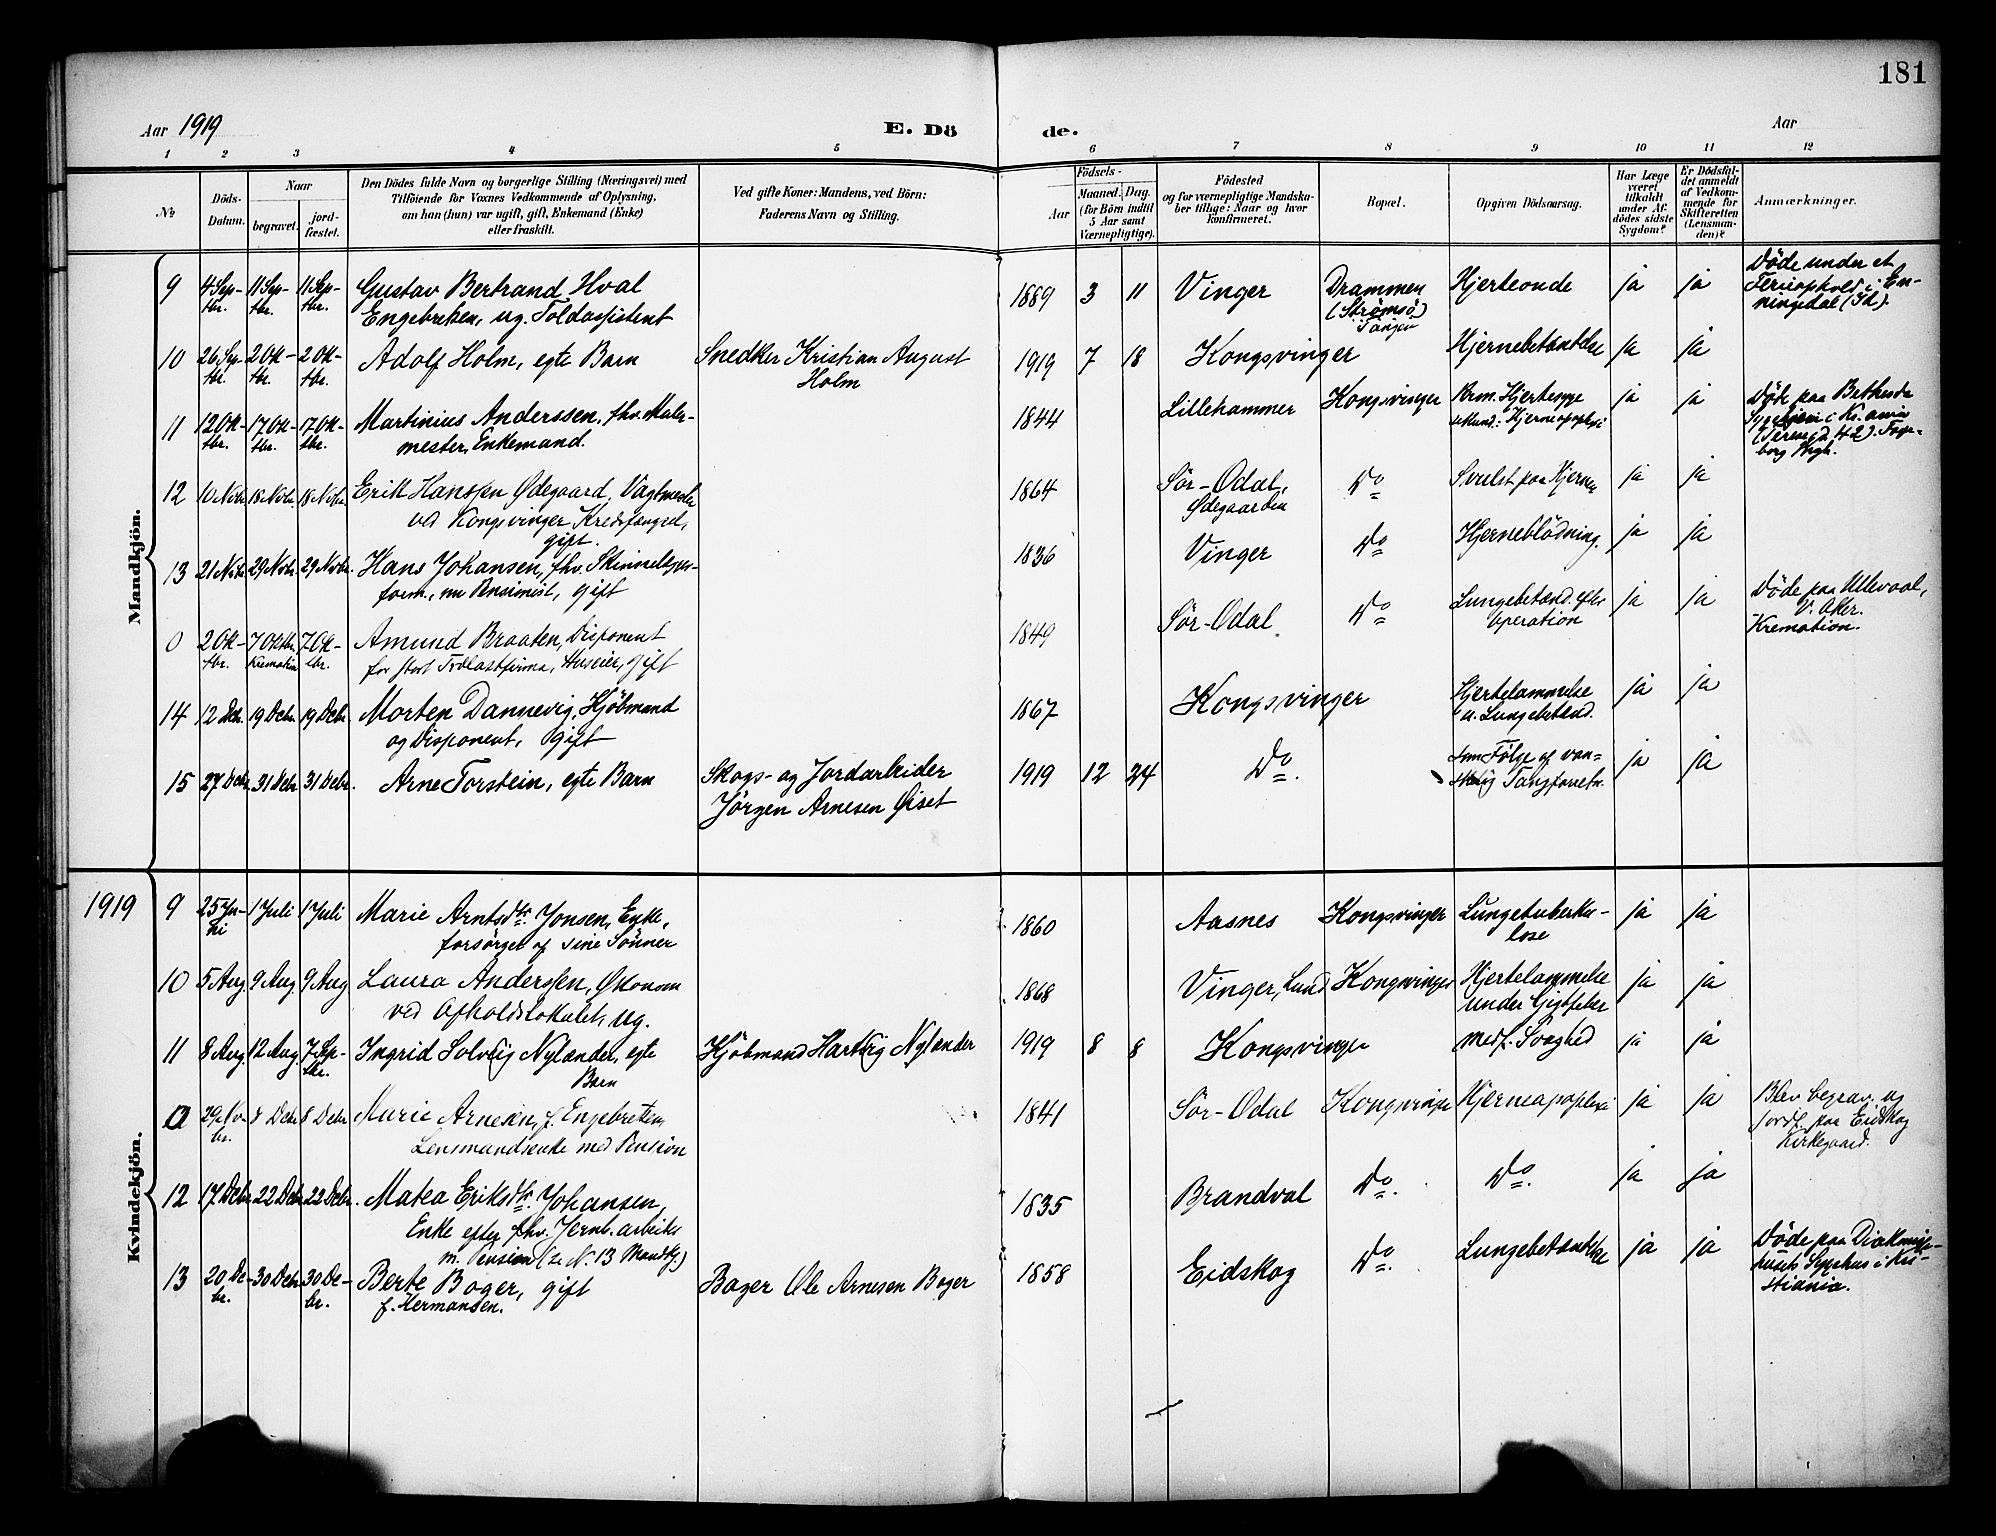 181
Aar 1919
E. Dö
de.
Aar
1 2 3 4 5 6 7 8 9 10 11 12
№
Döds-Datum.
Naar
begravet.
jord-fæstet.
Den Dödes fulde Navn og borgerlige Stilling (Næringsvei) med
Tilföiende for Voxnes Vedkommende af Oplysning,
om han (hun) var ugift, gift, Enkemand (Enke)
eller fraskilt.
Ved gifte Koner: Mandens, ved Börn:
Faderens Navn og Stilling.
Födsels-
Aar
Maaned. Dag.
(for Börn indtil
5 Aar samt
Værnepligtige).
Födested
og for værnepligtige Mandska-
ber tillige: Naar og hvor
konfirmeret.
Bopæl.
Opgiven Dödsaarsag.
Har Læge
været
tilkaldt
under Af-
dödes sidste
Sygdom?
Er Dödsfal-
det anmeldt
af Vedkom-
mende for
Skifteretten
(Lensman-
den)?
Anmærkninger.
Mandkjön.
9 4 Sep-tbr. 11 Sep-tbr. 11 Sep-tbr. Gustav Bertrand Hval
Engebretsen, ug. Toldassistent
1889 3 11 Vinger Drammen
(Strømsø)
Tangen
Hjerteonde ja ja Døde under et
Ferieophold i En-
ningdal (Id).
10 26 Sep-tbr. 2 Okt-br. 2 Okt-br. Adolf Holm, egte Barn Snedker Kristian August
Holm
1919 7 18 Kongsvinger Hjernebetændelse ja ja
11 12 Okt-br. 17 Okt-br. 17 Okt-br. Martinius Anderssen, fhv. Maler-
mester, Enkemand.
1844 Lillehammer Kongsvinger Prim. Hjertesyge
sekund: Hjerneapoplexi
ja ja Døde paa Bethesda
12 10 Novbr. 18 Novbr. 18 Novbr. Erik Hanssen Ødegaard, Vagtmester
ved Kongsvinger Kredsfængsel,
gift.
1864 Sör-Odal,
Ødegaarden
Do Svulst paa Hjernen ja ja
13 21 Novbr. 29 Novbr. 29 Novbr. Hans Johansen, fhv. Skinnelægger-
form., nu Pensionist, gift
1836 Vinger Do Hjerneblödning. ja ja
0 2 Okt-br. 7 Oktbr. Kremation 7 Okt-br. Amund Braaten, Disponent
for stort Trælastfirma, Huseier, gift
1849 Sör-Odal Do Lungebetænd. efter
Operation
ja ja Døde paa Ullevaal,
V. Aker.
Kremation.
14 12 Debr. 19 Debr. 19 Debr. Morten Dannevig, Kjöbmand
og Disponent, gift
1867 Kongsvinger Hjertelammelse
u. Lungebetænd.
ja ja
15 27 Debr. 31 Debr. 31 Debr. Arne Torstein, egte Barn Skogs- og Jordarbeider
Jörgen Arnesen Øiset
1919 12 24 Do. Som Fölge af van-
skelig Tangforretn.
ja ja
Kvindekjön.
1919
9 25 Ju-ni 1 Juli 1 Juli Marie Arntsdtr. Jonsen, Enke,
forsörget af sine Sönner
1860 Aasnes Kongsvinger Lungetuberku-
lose
ja ja
10 5 Aug. 9 Aug. 9 Aug Laura Anderssen, Økonom
ved Afholdslokalet, ug.
1868 Vinger, Lund Kongsvinger Hjertelammelse
under Gigtfeber
ja ja
11 8 Aug. 12 Aug. 7 Sep-tbr. Ingrid Solveig Nylænder, egte
Barn
Kjöbmand Hartvig Nylænder
1919 8 8 Kongsvinger medf. Svaghed ja ja
0 29 Nov-br. 8 Debr 8 Debr Marie Arnesen, f. Engebretsen,
Lensmandsenke med Pension
1841 Sör-Odal Kongsvinger Hjerneapoplexi ja ja Blev begrav. og
jordf. paa Eidskog
Kirkegaard.
12 17 Debr. 22 Debr. 22 Debr. Matea Eriksdtr. Johansen,
Enke efter fhv. Jernb.arbeider
m. Pension (se N. 13 Mandkj.)
1835 Brandval Do. Do. ja ja
13 20 De-br. 30 Debr 30 De-br. Berte Bager, gift
f. Hermansen.
Bager Ole Arnesen Bager
1858 Eidskog Do. Lungebetændelse ja ja Døde paa Diakonisse-
husets Sygehus i Kri-
stiania.